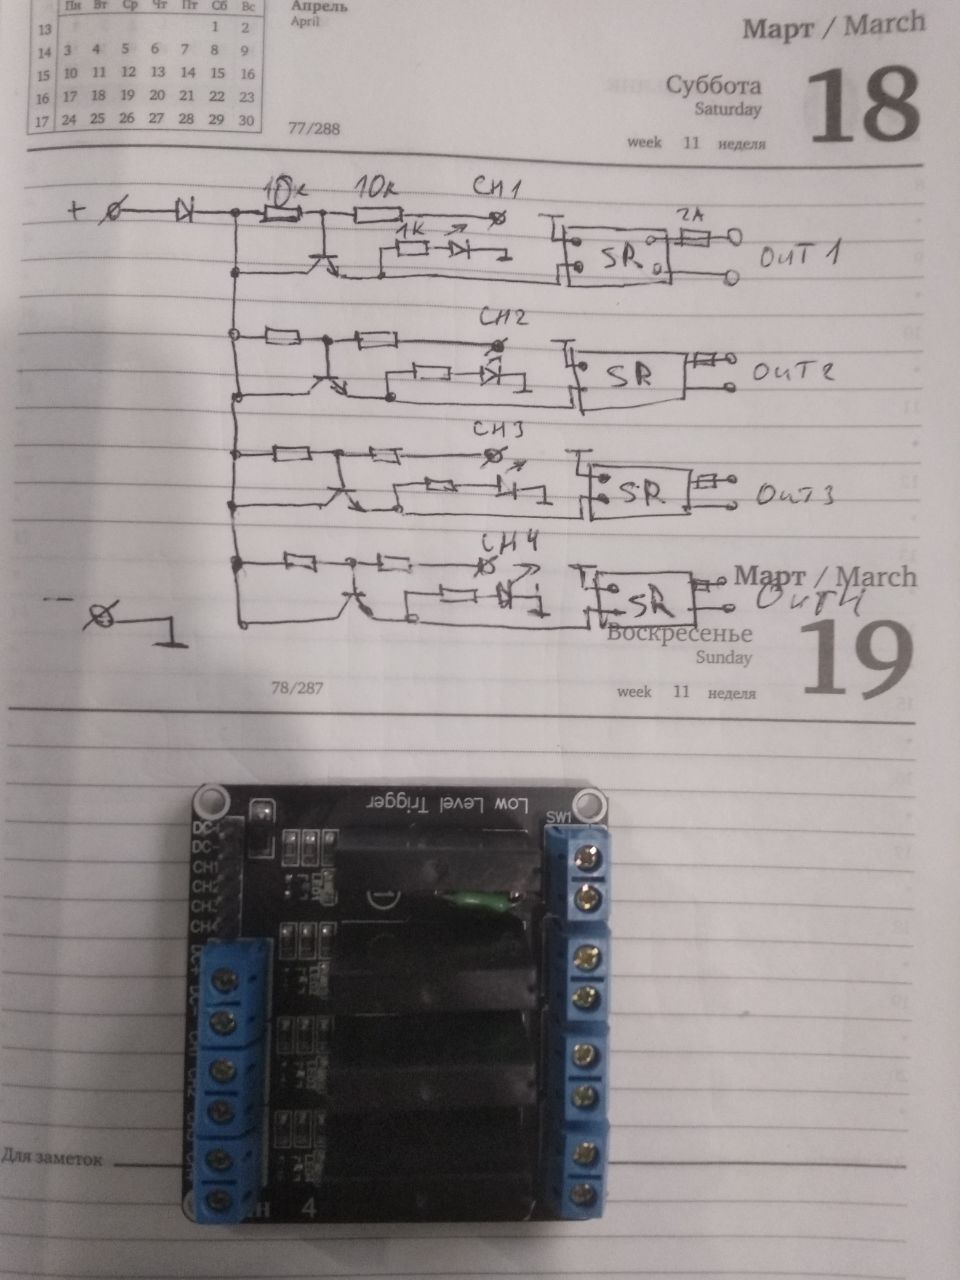 Пн Вт Ср Чт Пт Сб Вс
13 1 2
14 3 4 5 6 7 8 9
15 10 11 12 13 14 15 16
16 17 18 19 20 21 22 23
17 24 25 26 27 28 29 30
Апрель
April
77/288
Март / March
Суббота
Saturday
18
week 11 неделя
10к 10к CH1
+
1К
2A
SR OUT 1
CH2
SR OUT 2
CH3
SR OUT 3
CH4
SR OUT 4
–
Март / March
Воскресенье
Sunday
19
78/287
week 11 неделя
Low Level Trigger
SW1
DC+
DC-
CH1
CH2
CH3
CH4
DC+
DC-
CH1
CH2
4
Для заметок